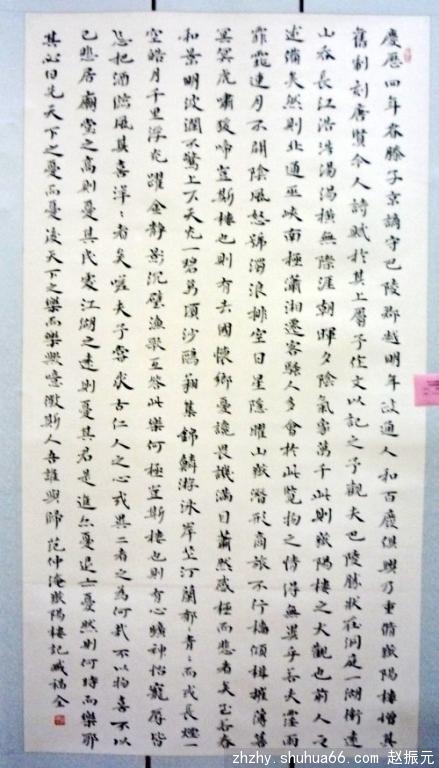 慶曆四年春滕子京謫守巴陵郡越明年政通人和百廢俱興乃重脩嶽陽樓增其
舊制刻唐賢今人詩賦於其上屬予作文以記之予觀夫巴陵勝狀在洞庭一湖銜遠
山吞長江浩浩湯湯橫無際涯朝暉夕陰氣象萬千此則嶽陽樓之大觀也前人之
述備矣然則北通巫峽南極瀟湘遷客騷人多會於此覽物之情得無異乎若夫霪雨
霏霏連月不開陰風怒號濁浪排空日星隱曜山嶽潛形商旅不行檣傾楫摧薄暮
冥冥虎嘯猿啼登斯樓也則有去國懷鄉憂讒畏譏滿目蕭然感極而悲者矣至若春
和景明波瀾不驚上下天光一碧萬頃沙鷗翔集錦鱗游泳岸芷汀蘭郁〻青〻而或長煙一
空皓月千里浮光躍金靜影沉璧漁歌互答此樂何極登斯樓也則有心曠神怡寵辱皆
忘把酒臨風其喜洋〻者矣嗟夫予嘗求古仁人之心或異二者之為何哉不以物喜不以
己悲居廟堂之高則憂其民處江湖之遠則憂其君是進亦憂退亦憂然則何時而樂耶
其必曰先天下之憂而憂後天下之樂而樂歟噫微斯人吾誰與歸 范仲淹嶽陽樓記臧福全
zhzhy.shuhua66.com 赵振元